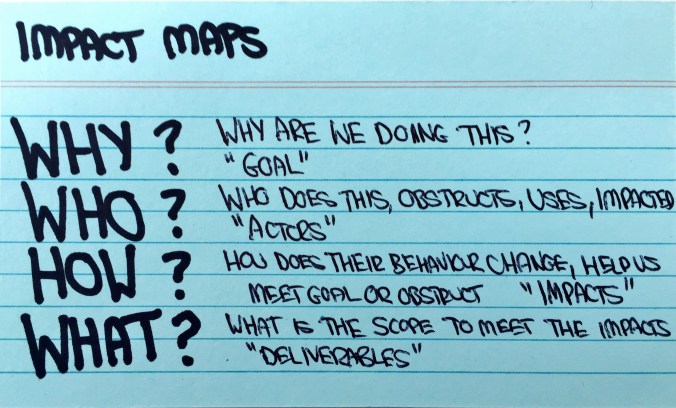 IMPACT MAPS
WHY? WHY ARE WE DOING THIS?
"GOAL"
WHO? WHO DOES THIS, OBSTRUCTS, USES, IMPACTED
"ACTORS"
HOW? HOW DOES THEIR BEHAVIOUR CHANGE, HELP US
MEET GOAL OR OBSTRUCT "IMPACTS"
WHAT? WHAT IS THE SCOPE TO MEET THE IMPACTS
"DELIVERABLES"